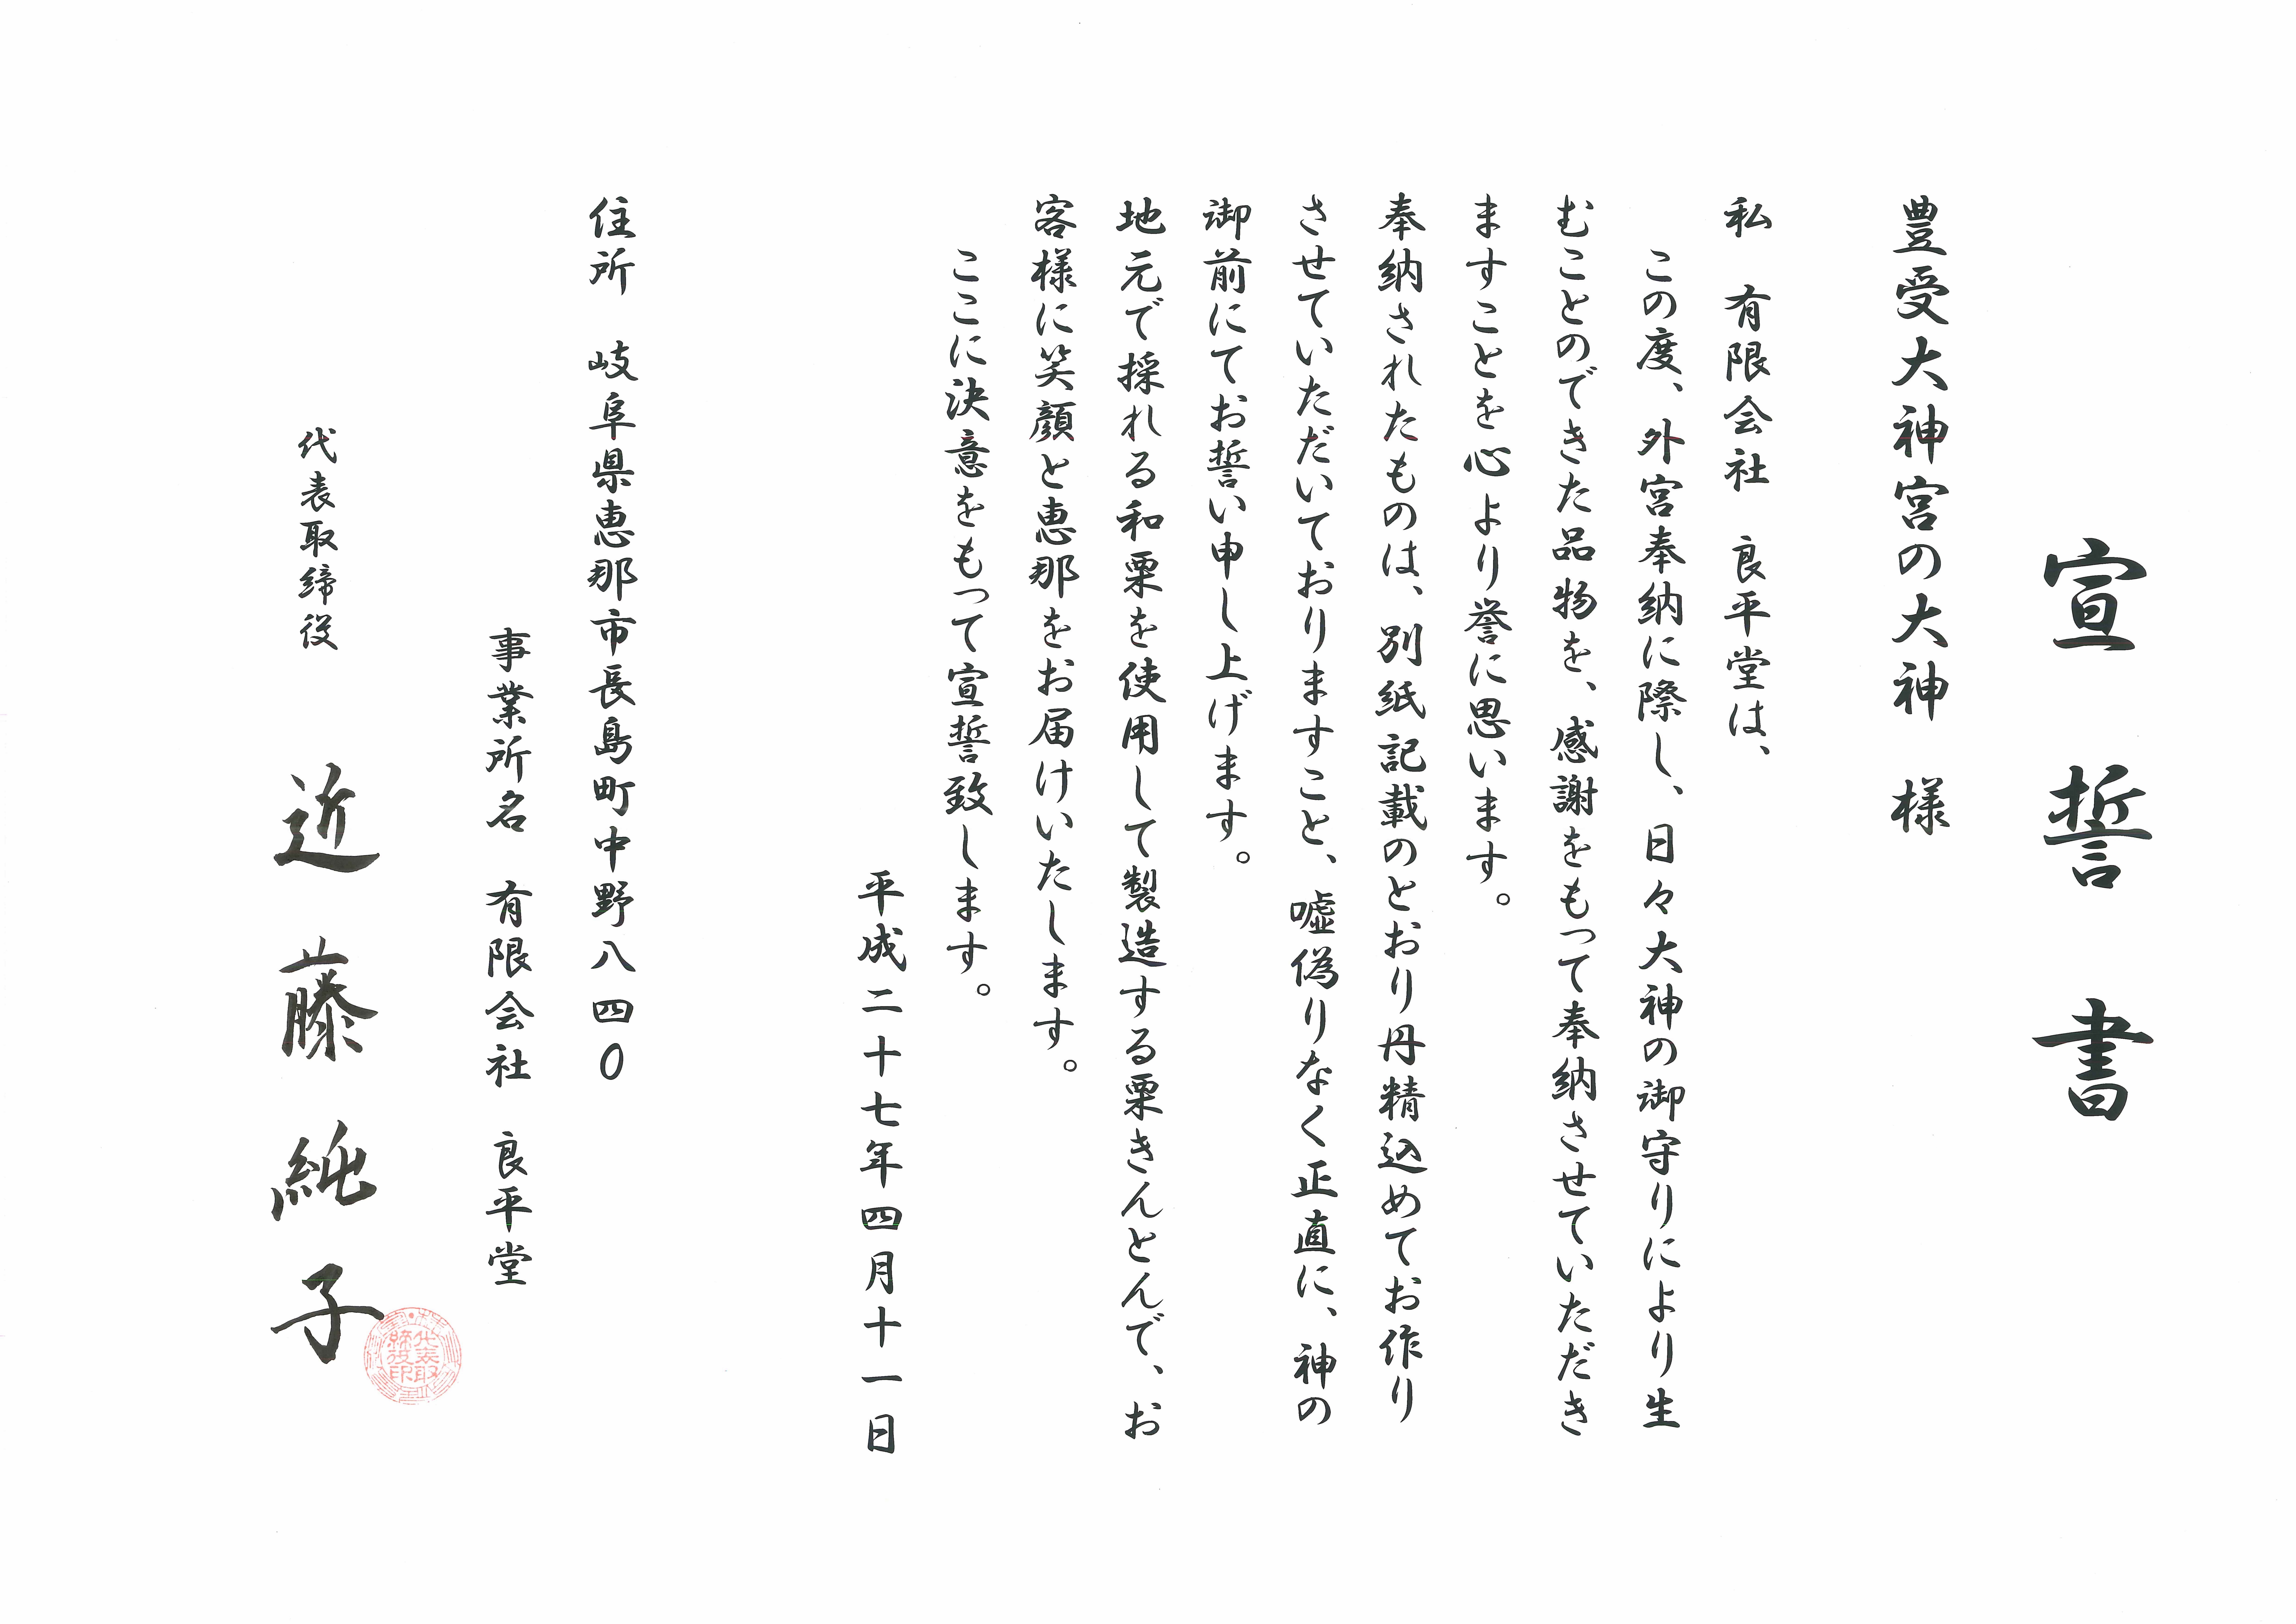 宣誓書
豊受大神宮の大神　様
私　有限会社　良平堂は、
この度、外宮奉納に際し、日々大神の御守りにより生
むことのできた品物を、感謝をもって奉納させていただき
ますことを心より誉に思います。
奉納されたものは、別紙記載のとおり丹精込めてお作り
させていただいておりますこと、嘘偽りなく正直に、神の
御前にてお誓い申し上げます。
地元で採れる和栗を使用して製造する栗きんとんで、お
客様に笑顔と恵那をお届けいたします。
ここに決意をもって宣誓致します。
平成二十七年四月十一日
住所　岐阜県恵那市長島町中野八四０
事業所名　有限会社　良平堂
代表取締役　近藤純子
代表取
締役印